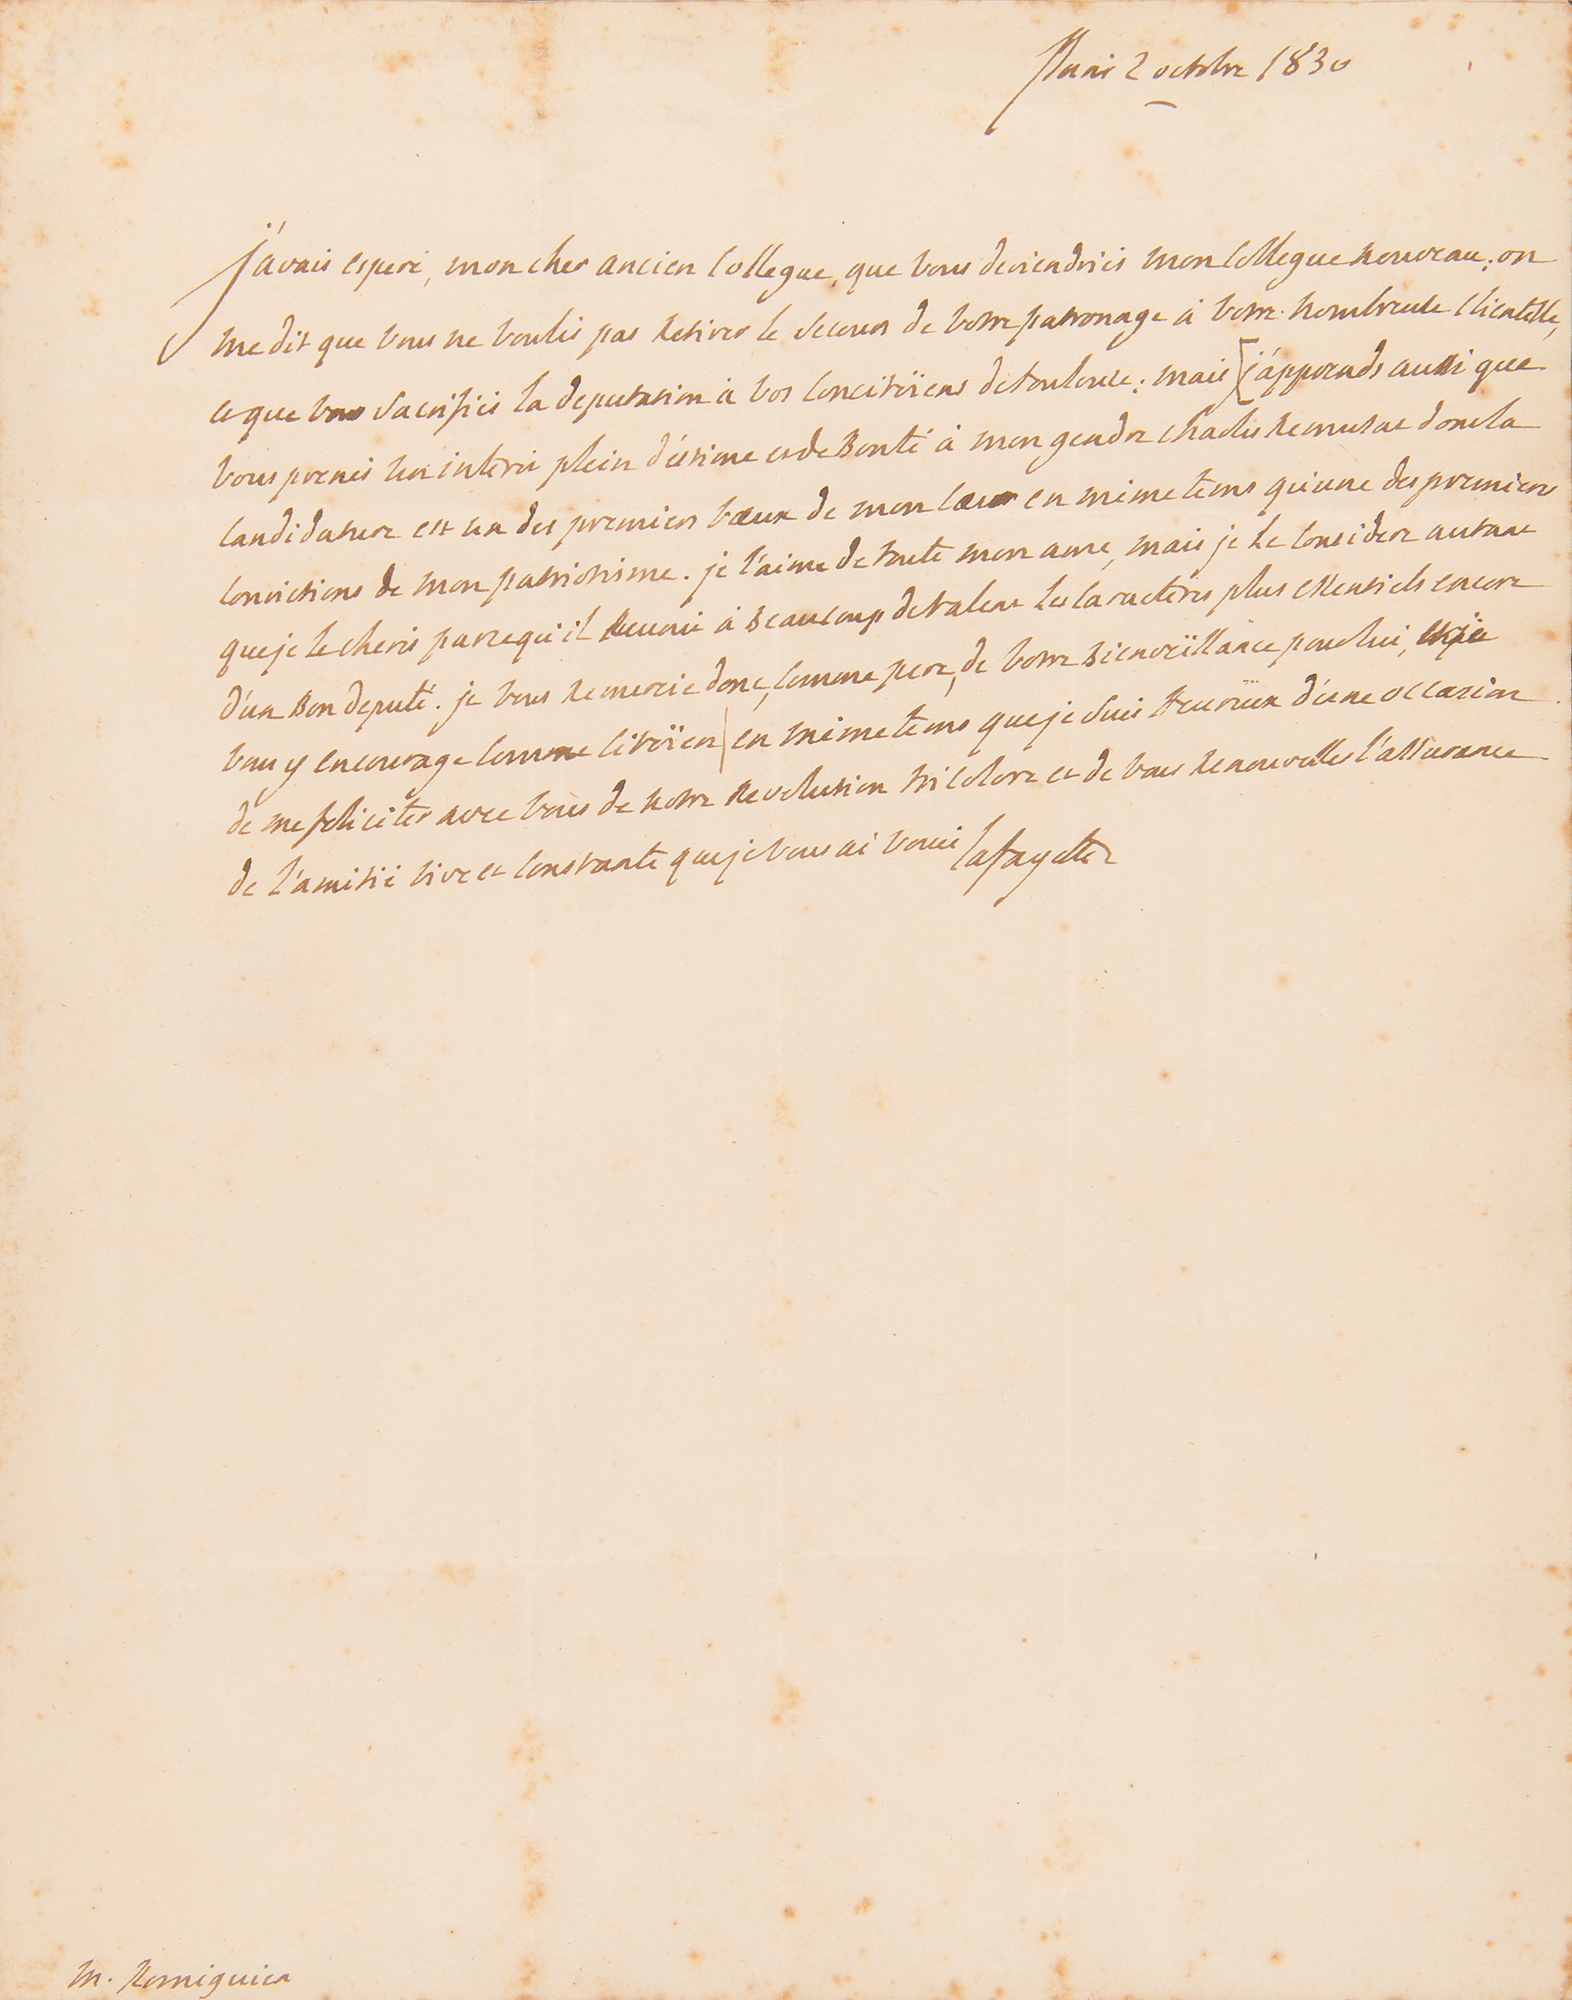 Paris 2 octobre 1830
j'avais esperé, mon cher ancien collegue, que vous deviendriés mon collegue nouveau; on
me dit que vous ne voulés pas retirer le secours de votre patronage à votre nombreuse clientelle,
et que vous sacrifiés la deputation à vos concitöiens de toulouse; mais [j'apprends aussi que
vous prenés un interêt plein d'estime et de Bonté à mon gendre charles Remusat dont la
candidature est un des premiers vœux de mon cœur en même tems qu'une des premieres
convictions de mon patriotisme. je l'aime de toute mon ame, mais je le considere autant
que je le cheris parcequ'il Reunit à Beaucoup de talent les caractères plus essentiels encore
d'un Bon deputé. je vous Remercie donc, comme pere, de votre Bienveïllance pour lui, et je
vous y encourage comme citöïen] en même tems que je suis Heureux d'une occasion
de me feliciter avec vous de notre Revolution tricolore et de vous Renouveller l'assurance
de l'amitié vive et constante que je vous ai vouée Lafayette
M. Romiguiere